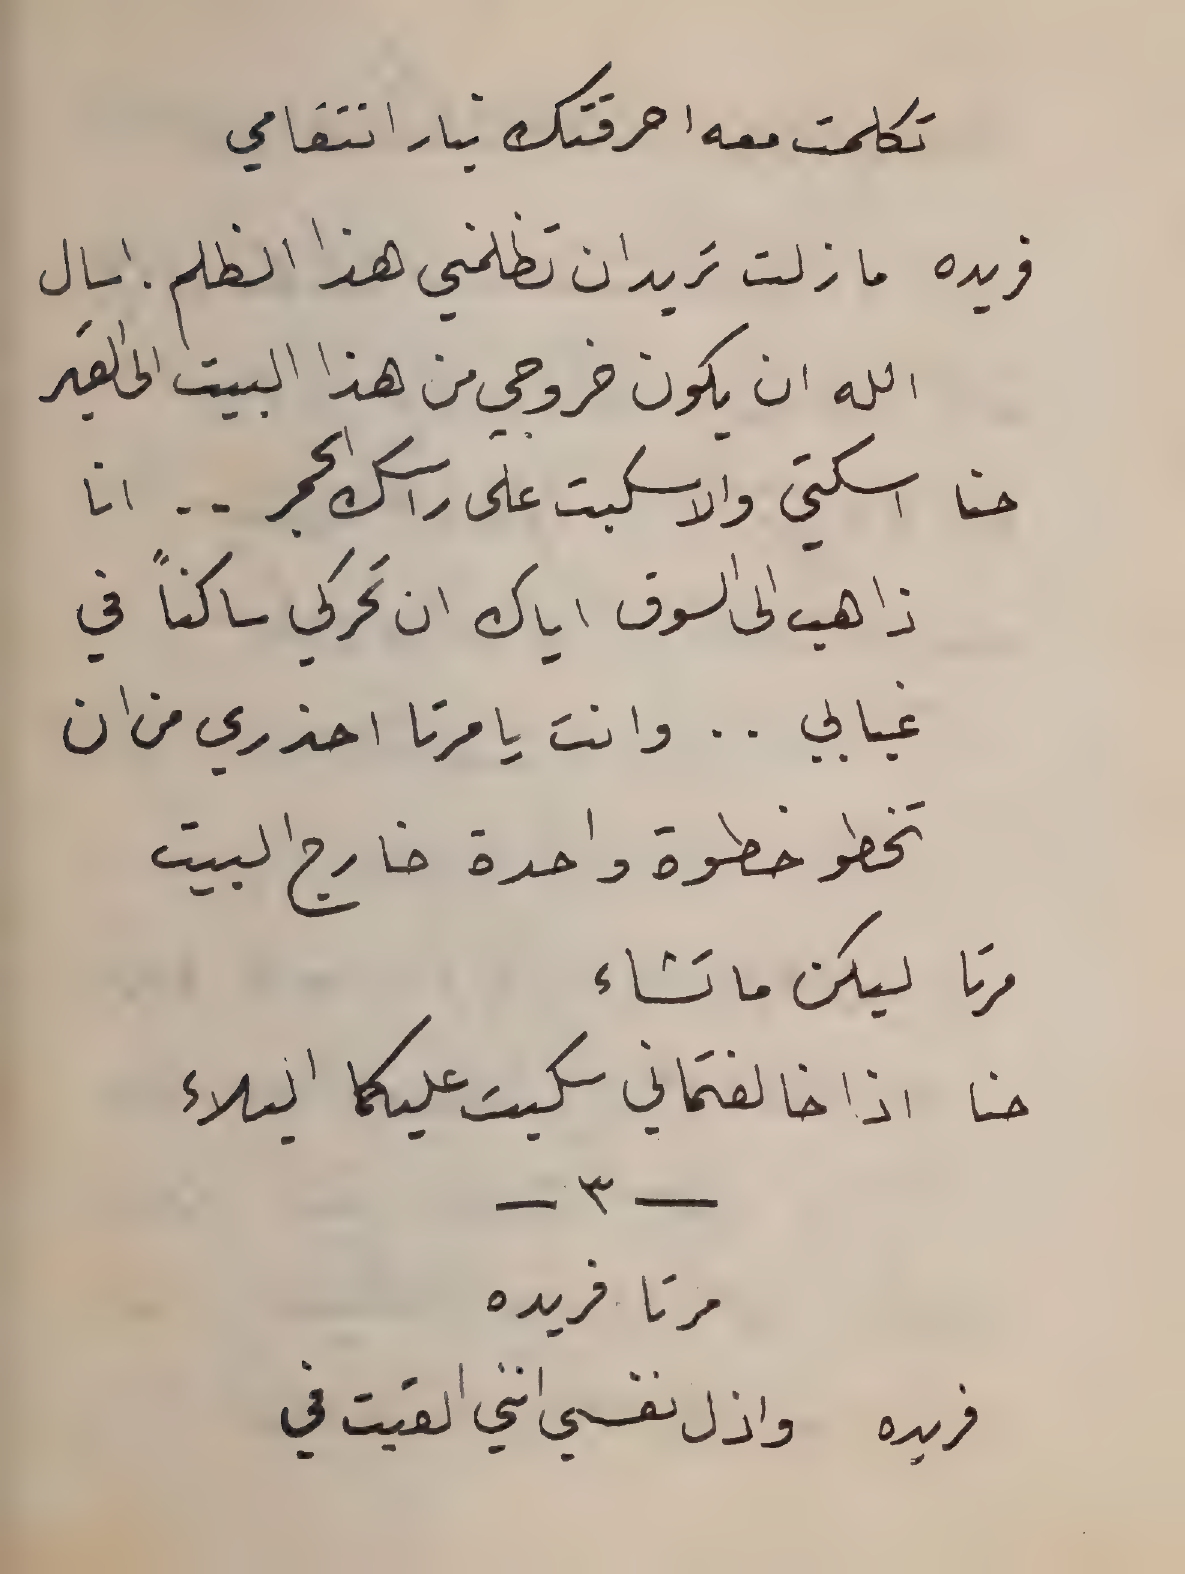 تكلمت معه احرقتك بنار انتقامي
فريده ما زلت تريد ان تظلمني هذا الظلم . اسال
الله ان يكون خروجي من هذا البيت الى القبر
حنا اسكتي والا سكبت على راسك الجمر .. انا
ذاهب الى السوق اياك ان تحركي ساكناً في
غيابي .. وانت يا مرتا احذري من ان
تخطو خطوة واحدة خارج البيت
مرتا ليكن ما تشاء
حنا اذا خالفتماني سكبت عليكما البلاء
— ٣ —
مرتا فريده
فريده واذل نفسي انني القيت في